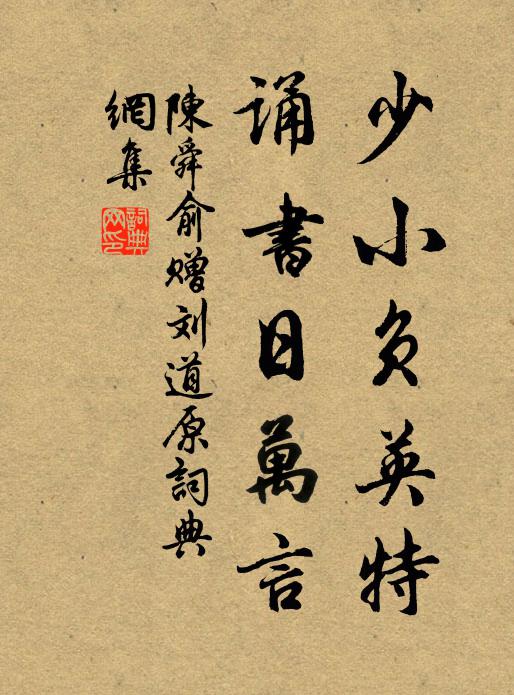 少小负英特
诵書日萬言
陳舜俞赠刘道原詞典
網集
詞典
网印